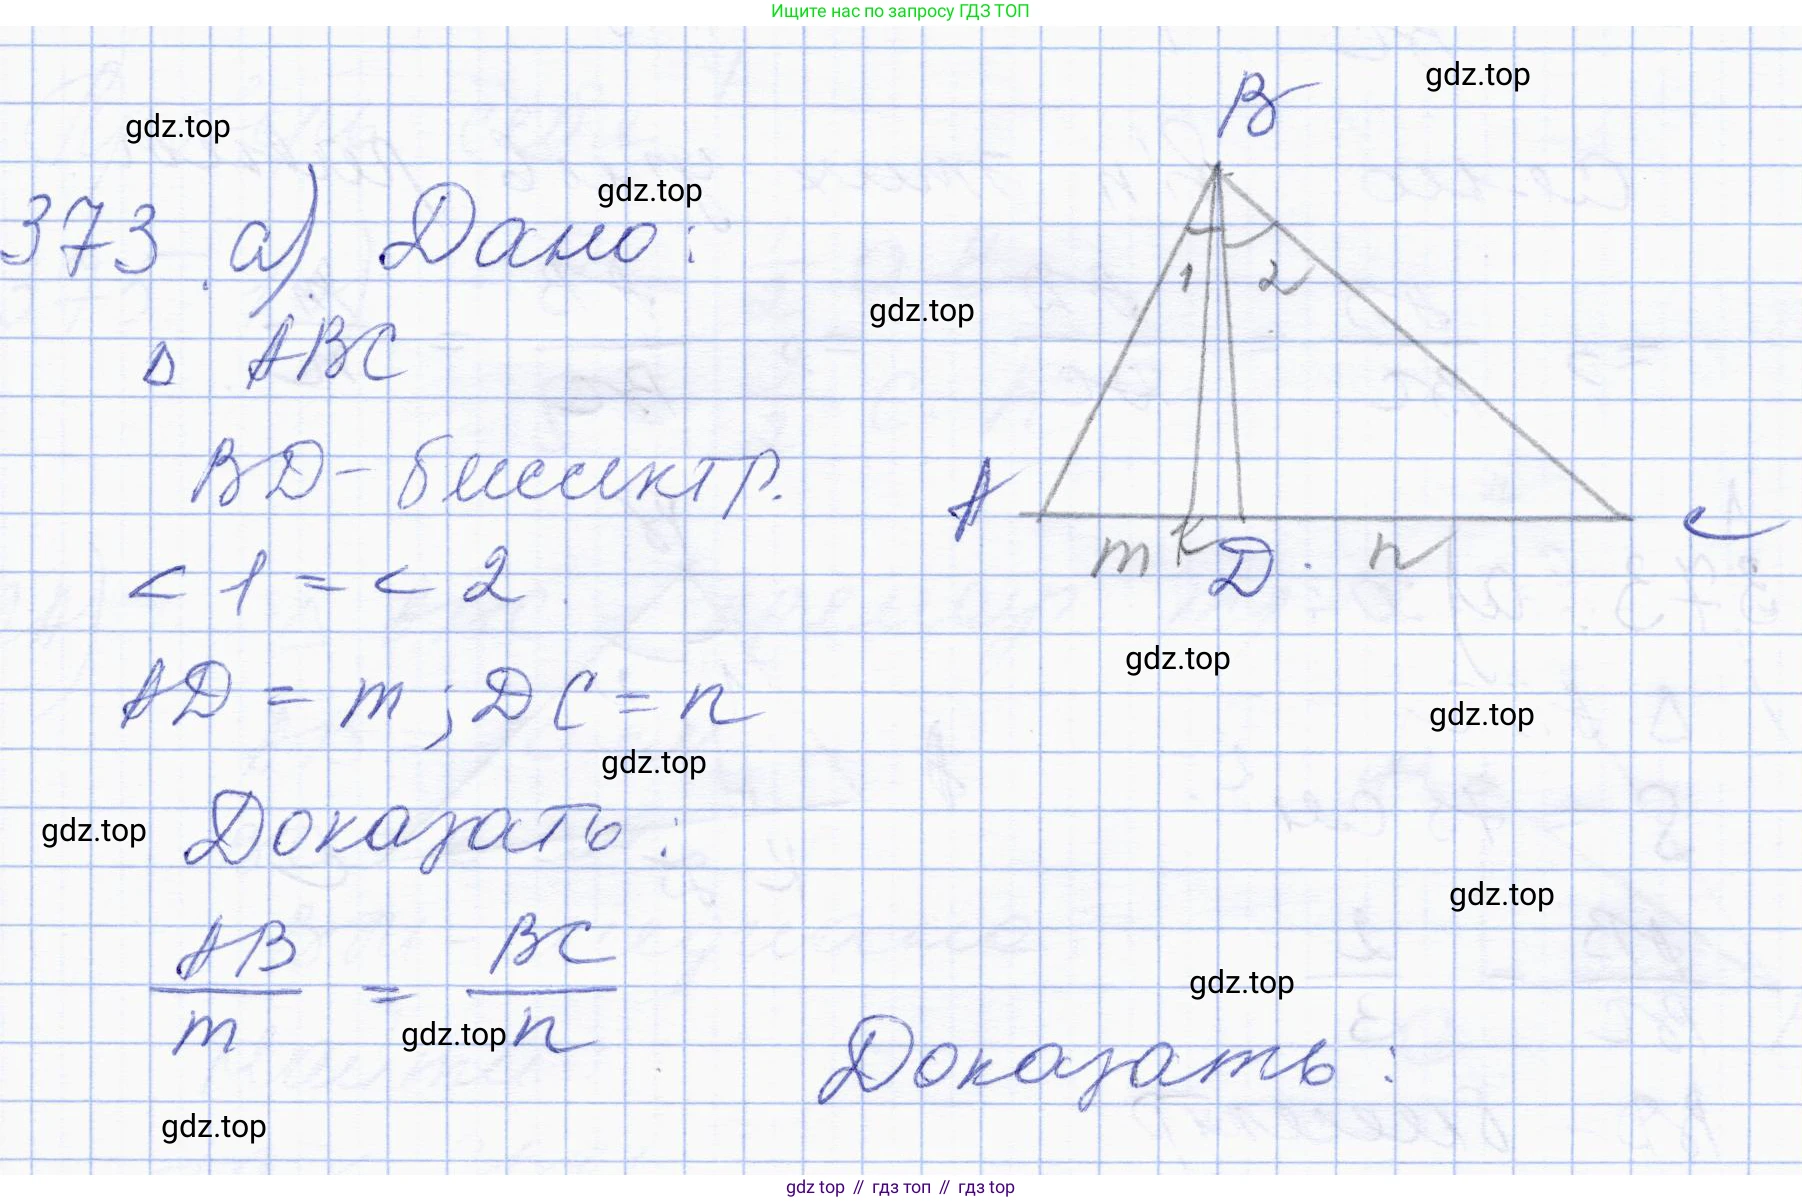 Ищите нас по запросу ГДЗ ТОП
gdz.top
gdz.top
gdz.top
373 а) Дано:
B
1 2
gdz.top
Δ ABC
BD - биссектр.
A m K D n C
< 1 = < 2
gdz.top
AD = m ; DC = n
gdz.top
gdz.top
gdz.top
Доказать:
gdz.top
AB/m = BC/n
gdz.top
gdz.top
Доказать:
gdz.top
gdz top // гдз топ // гдз top